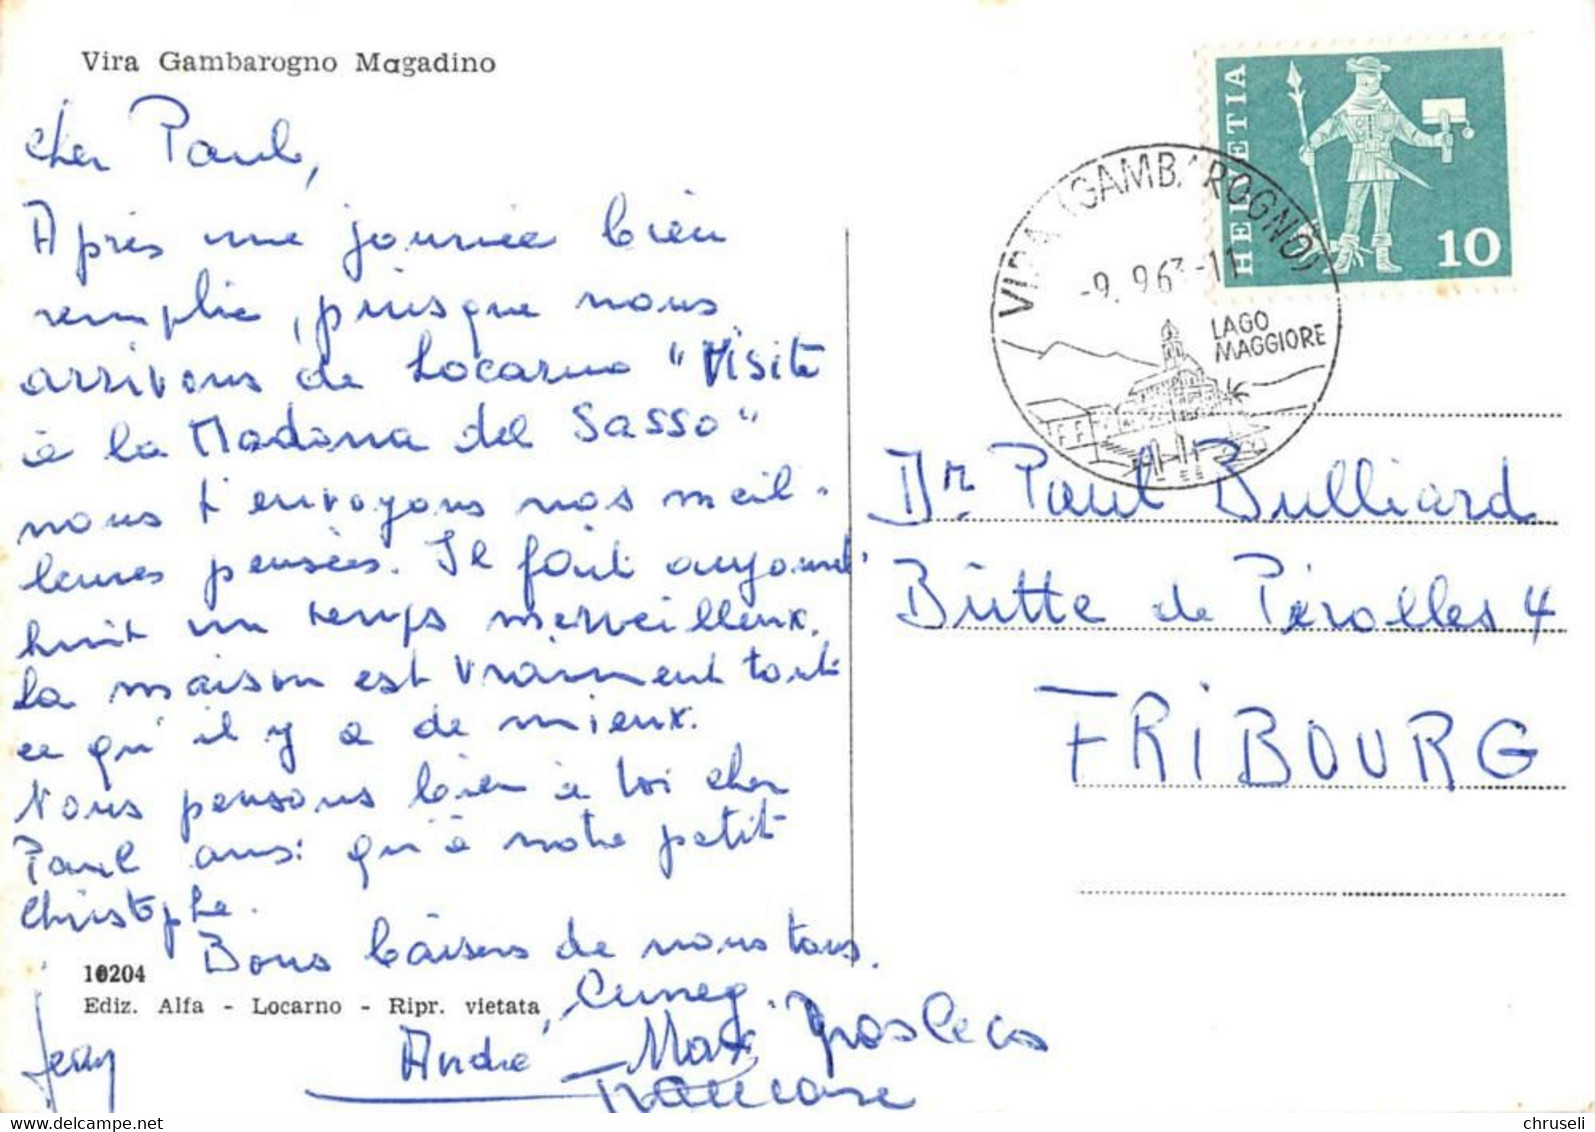 Vira Gambarogno Magadino
HELVETIA
10
VIRA (GAMBAROGNO)
-9. 9.63-11
LAGO
MAGGIORE
Cher Paul,
Après une journée bien
remplie, puisque nous
arrivons de Locarno "Visite
à la Madona del Sasso"
nous t'envoyons nos meil-
leures pensées. Il fait aujourd'
huit un temps merveilleux.
La maison est vraiment tout
ce qu'il y a de mieux.
Nous pensons bien à toi cher
Paul ausi qu'à notre petit
Christophe.
Bons baisers de nous tous.
Dr. Paul Bulliard
Bütte de Pérolles 4
FRIBOURG
10204
Ediz. Alfa - Locarno - Ripr. vietata
André
Max
chruseli